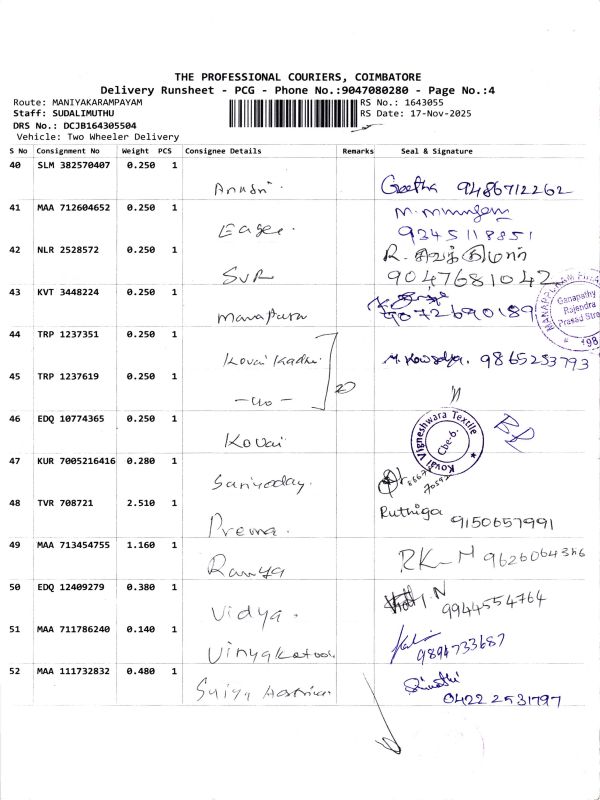 THE PROFESSIONAL COURIERS, COIMBATORE
Delivery Runsheet - PCG - Phone No.:9047080280 - Page No.:4
Route: MANIYAKARAMPAYAM RS No.: 1643055
Staff: SUDALIMUTHU RS Date: 17-Nov-2025
DRS No.: DCJB164305504
Vehicle: Two Wheeler Delivery
S No Consignment No Weight PCS Consignee Details Remarks Seal & Signature
40 SLM 382570407 0.250 1
Geetha 9486712262
41 MAA 712604652 0.250 1
9345118351
42 NLR 2528572 0.250 1
SVR 9047681042
43 KVT 3448224 0.250 1
9072690189
Ganapathy
Rajendra
Prasad Stre
44 TRP 1237351 0.250 1
Kovai M. Kowsalya. 9865253793
45 TRP 1237619 0.250 1
46 EDQ 10774365 0.250 1
Kovai
Kovai Vigneshwara Textile
Cbe-6.
47 KUR 7005216416 0.280 1
48 TVR 708721 2.510 1
Prema. Ruthiga
9150657991
49 MAA 713454755 1.160 1
Ramya
50 EDQ 12409279 0.380 1
Vidya. 9944554764
51 MAA 711786240 0.140 1
9894733687
52 MAA 111732832 0.480 1
0422 2531797